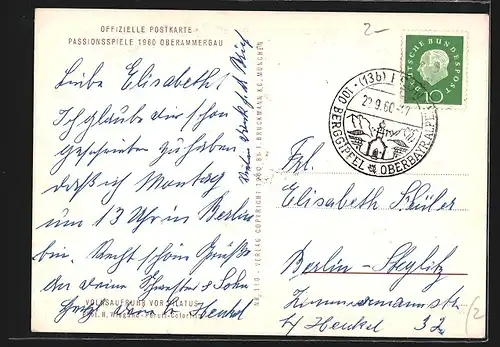 OFFIZIELLE POSTKARTE
PASSIONSSPIELE 1960 OBERAMMERGAU
Liebe Elisabeth!
Ich glaube dir schon
geschrieben zu haben,
daß ich Montag
um 13 Uhr in Berlin
bin. Recht schöne Grüße
an deine & Sohn
von
Vielen Dank f. d.
VOLKSAUFRUHR VOR PILATUS
NR. 110 - VERLAG COPYRIGHT 1960 BY F. BRUCKMANN KG. MÜNCHEN
2-
DEUTSCHE BUNDESPOST
10
(13b)
22.9.60
100 BERGGIPFEL
OBERBAYR.
Frl.
Elisabeth Schüler
Berlin-Steglitz
Zimmermannstr.
b/ Henkel
(2